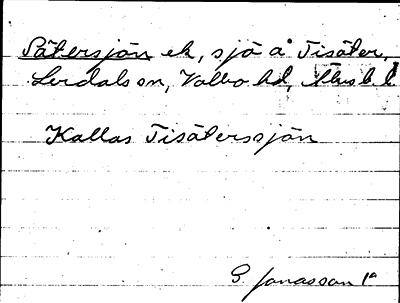 Sätersjön ek, sjö å Tisäter,
Lerdals sn, Valbo hd, Älvsb l
Kallas Tisäterssjön
G Jonasson 1a